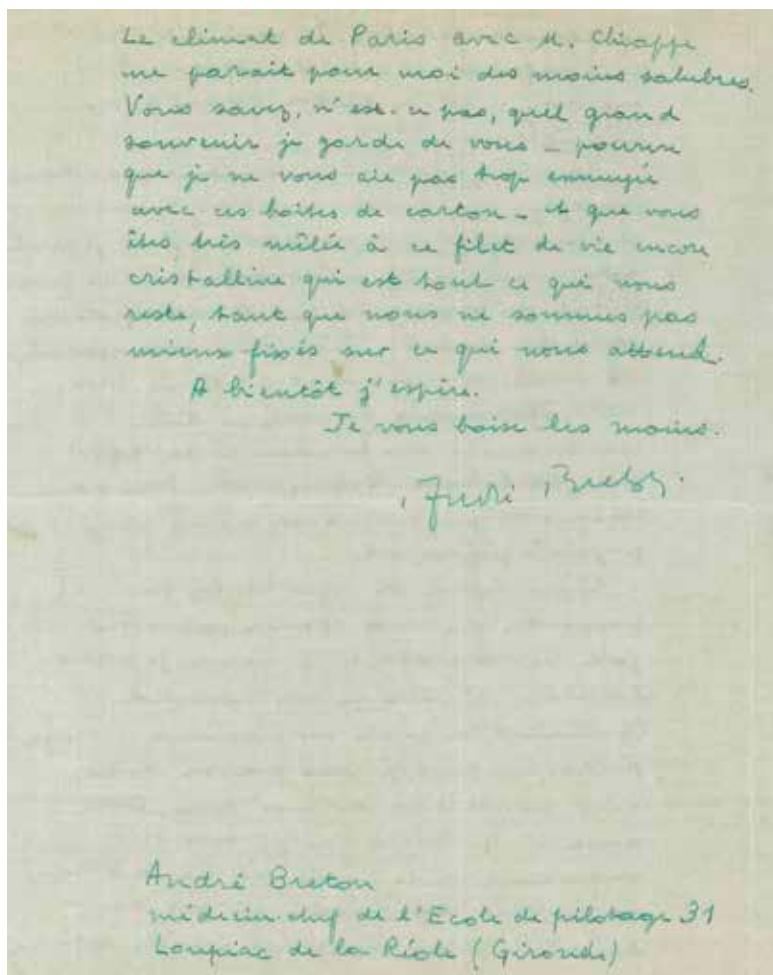 Le climat de Paris avec M. Chiappe
me paraît pour moi des moins salubres.
Vous savez, n'est-ce pas, quel grand
souvenir je garde de vous – pourvu
que je ne vous aie pas trop ennuyée
avec ces boîtes de carton – et que vous
êtes très mêlée à ce filet de vie encore
cristalline qui est tout ce qui nous
reste, tant que nous ne sommes pas
mieux fixés sur ce qui nous attend.
A bientôt j'espère.
Je vous baise les mains.
André Breton.
André Breton
médecin-chef de l'Ecole de pilotage 31
Loupiac de la Réole (Gironde)